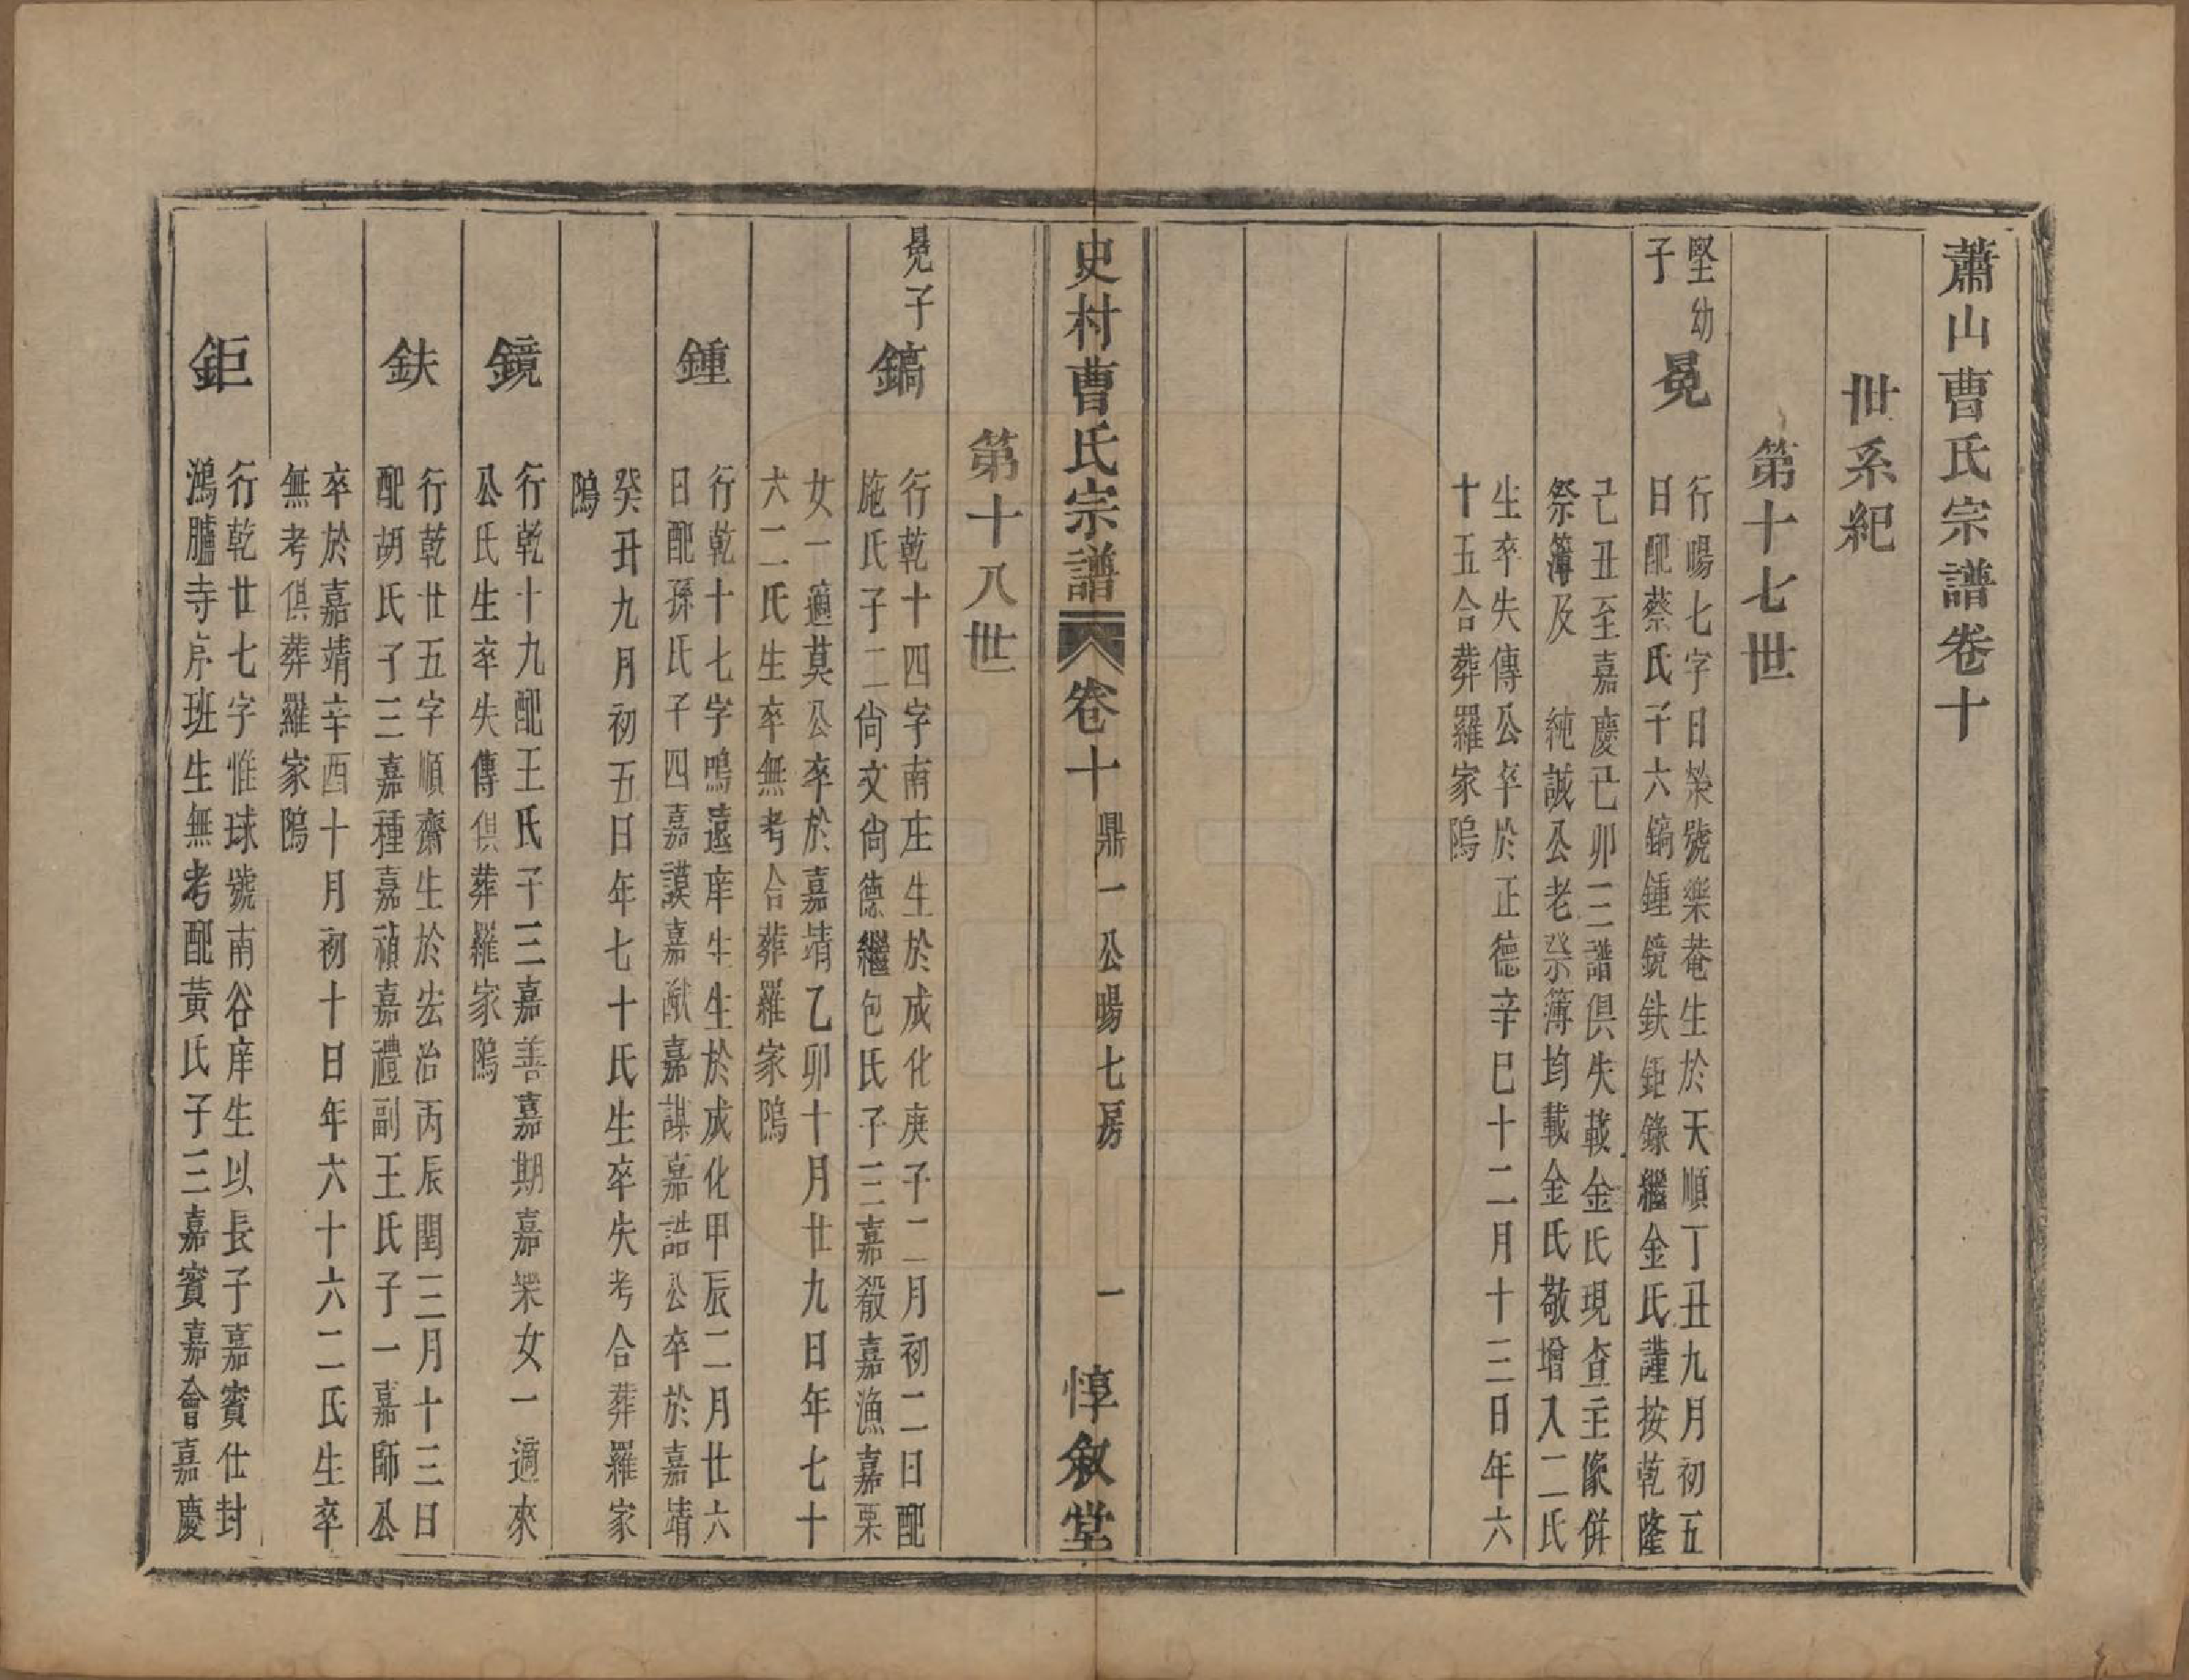 蕭山曹氏宗譜卷十
世系紀
第十七世
堅幼
子
冕
行暘七字日榮號樂菴生於天順丁丑九月初五
日配蔡氏子六鎬鍾鏡鈇鉅錄繼金氏謹按乾隆
己丑至嘉慶己卯三譜俱失載金氏現查主像併
祭簿及 純誠公老祭簿均載金氏敬增入二氏
生卒失傳公卒於正德辛巳十二月十三日年六
十五合葬羅家隝
史村曹氏宗譜 卷十 鼎一公暘七房 一 惇敘堂
第十八世
冕子
鎬
行乾十四字南庄生於成化庚子二月初二日配
施氏子二尙文尙德繼包氏子三嘉殽嘉漁嘉栗
女一適莫公卒於嘉靖乙卯十月廿九日年七十
六二氏生卒無考合葬羅家隝
鍾
行乾十七字鳴遠庠生生於成化甲辰二月廿六
日配孫氏子四嘉謨嘉猷嘉謀嘉誥公卒於嘉靖
癸丑九月初五日年七十氏生卒失考合葬羅家
隝
鏡
行乾十九配王氏子三嘉善嘉期嘉樂女一適來
公氏生卒失傳俱葬羅家隝
鈇
行乾廿五字順齋生於宏治丙辰閏三月十三日
配胡氏子三嘉種嘉禎嘉禮副王氏子一嘉師公
卒於嘉靖辛酉十月初十日年六十六二氏生卒
無考俱葬羅家隝
鉅
行乾廿七字惟球號南谷庠生以長子嘉賓仕封
鴻臚寺序班生無考配黃氏子三嘉賓嘉會嘉慶